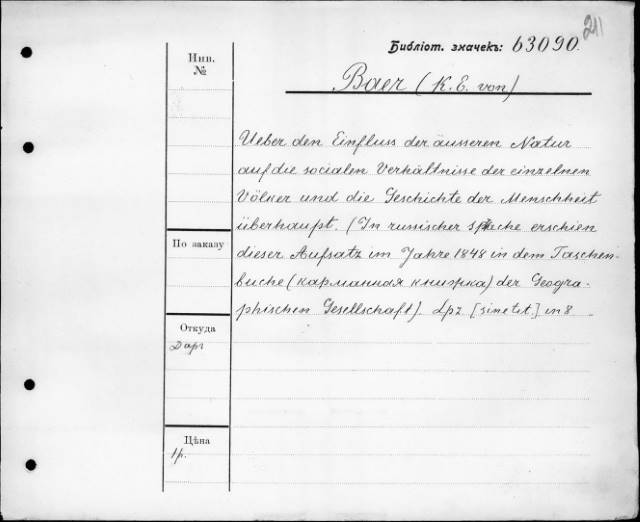 211
Библіот. значекъ: 63090.
Baer (K. E. von)
Инв.
№
Ueber den Einfluss der äusseren Natur
auf die socialen Verhältnisse der einzelnen
Völker und die Geschichte der Menschheit
überhaupt. (In russischer Sprache erschien
dieser Aufsatz im Jahre 1848 in dem Taschen-
buche (карманная книжка) der Geogra-
phischen Gesellschaft). Lpz. [sine tit.] in 8.
По заказу
Откуда
Даръ
Цѣна
1р.